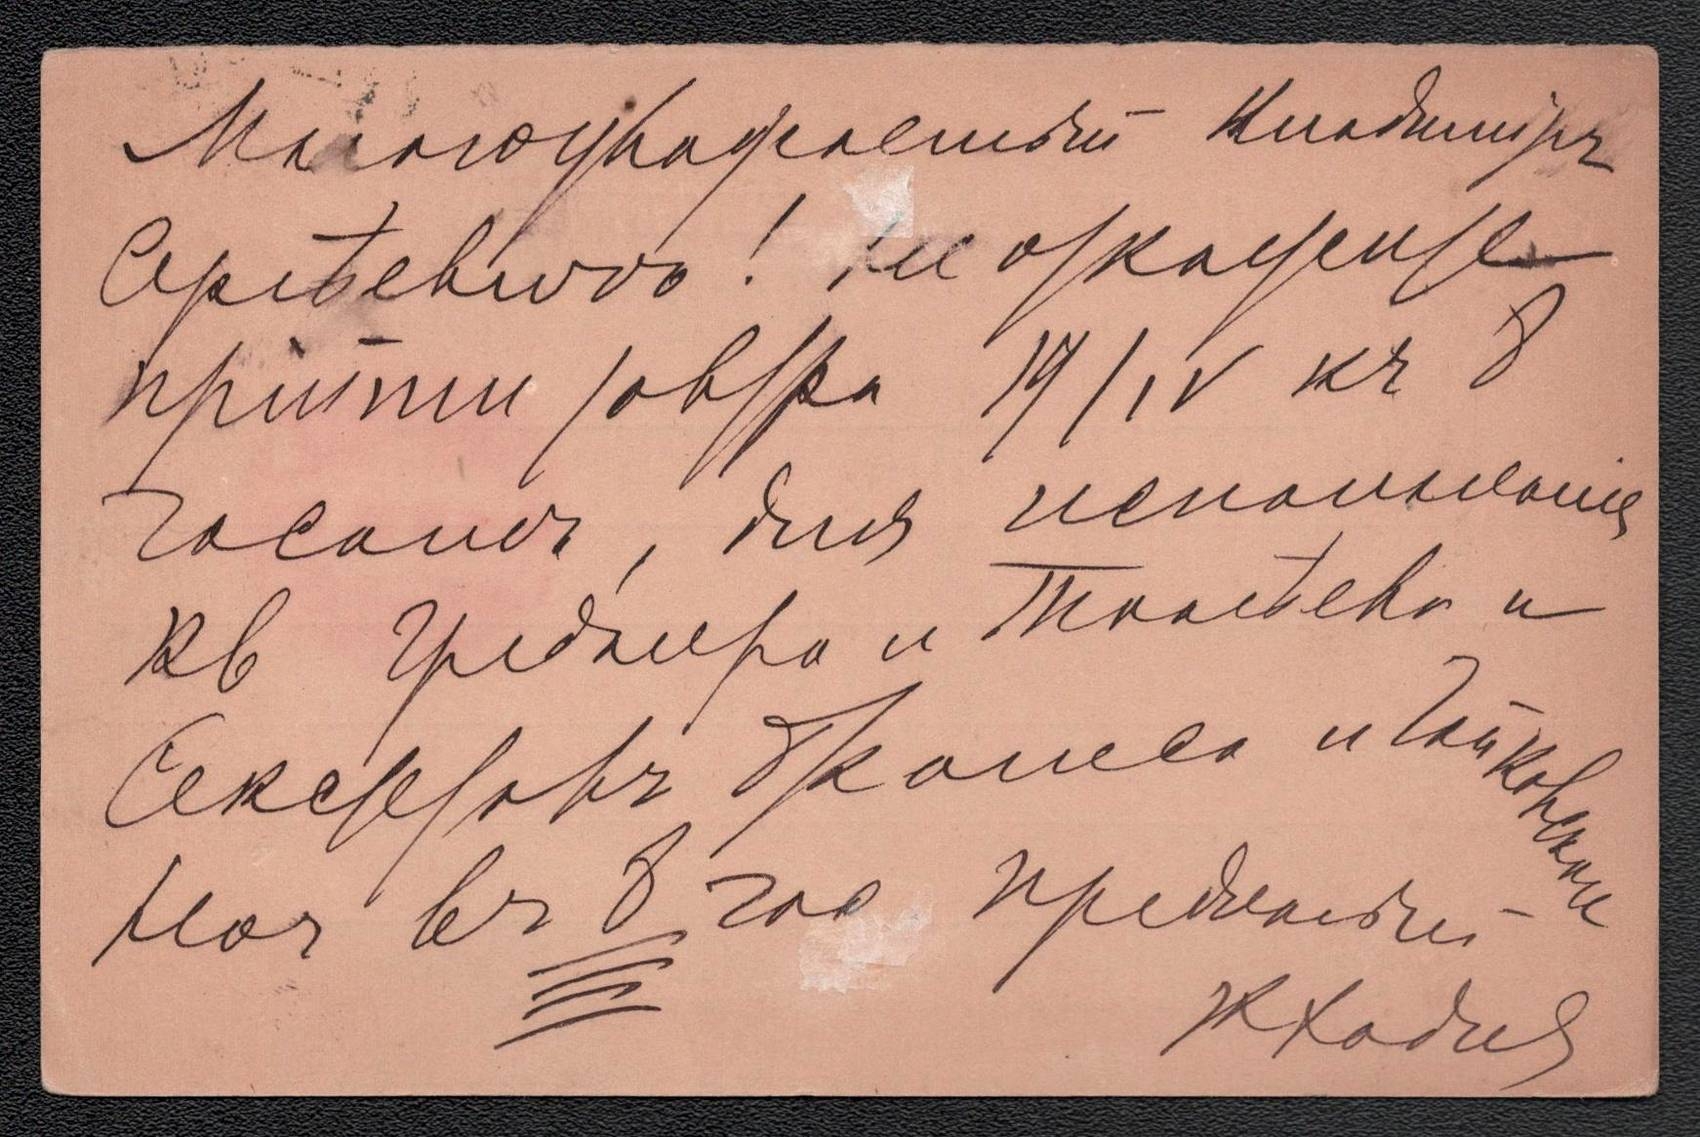 Многоуважаемый Владимiръ
Сергѣевичъ! Не откажите
прiйти завтра 19/IV къ 8
часамъ, для исполненiя
кв Гредзнера и Танѣева и
Секстетовъ Брамса и Чайковскаго
Нач въ 8 час преданный
Н Ходня